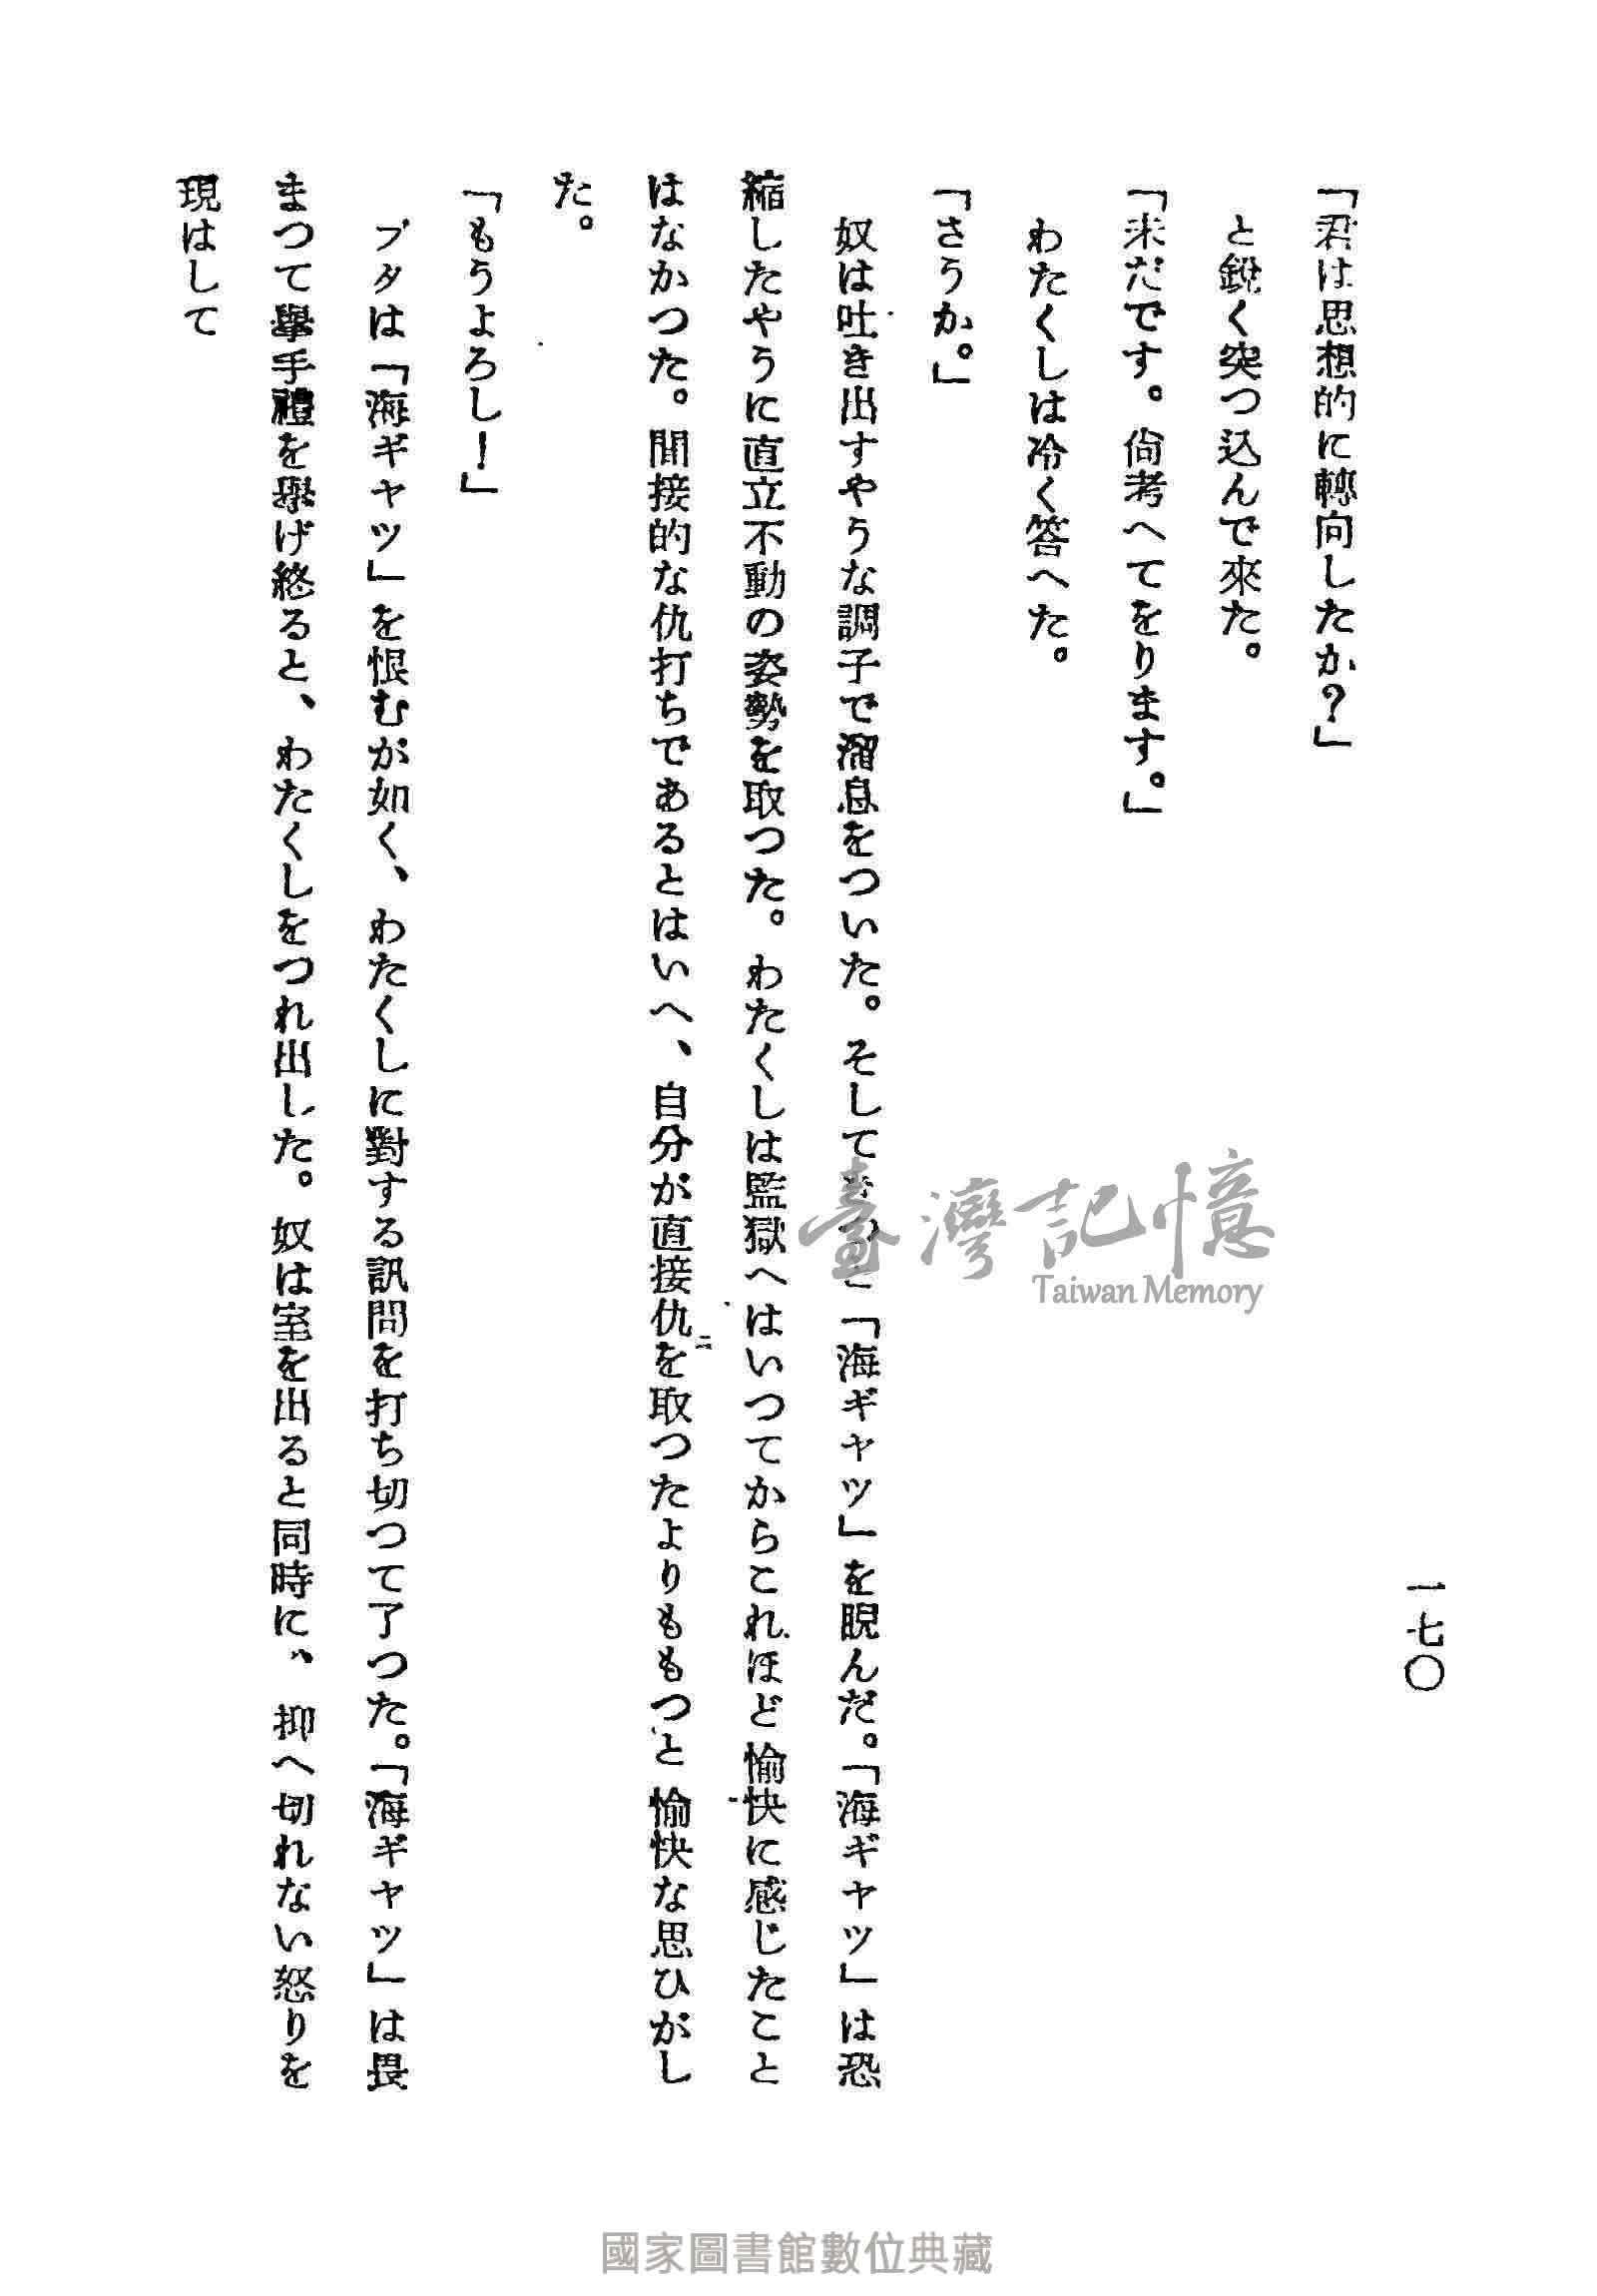 一七〇
「君は思想的に轉向したか？」
と銳く突つ込んで來た。
「未だです。尙考へてをります。」
わたくしは冷く答へた。
「さうか。」
奴は吐き出すやうな調子で溜息をついた。そして「海ギャツ」を睨んだ。「海ギャツ」は恐
縮したやうに直立不動の姿勢を取つた。わたくしは監獄へはいつてからこれほど愉快に感じたこと
はなかつた。間接的な仇打ちであるとはいへ、自分が直接仇を取つたよりももつと愉快な思ひがし
た。
「もうよろし！」
ブタは「海ギャツ」を恨むが如く、わたくしに對する訊問を打ち切つて了つた。「海ギャツ」は畏
まつて擧手禮を擧げ終ると、わたくしをつれ出した。奴は室を出ると同時に、抑へ切れない怒りを
現はして
臺灣記憶
Taiwan Memory
國家圖書館數位典藏